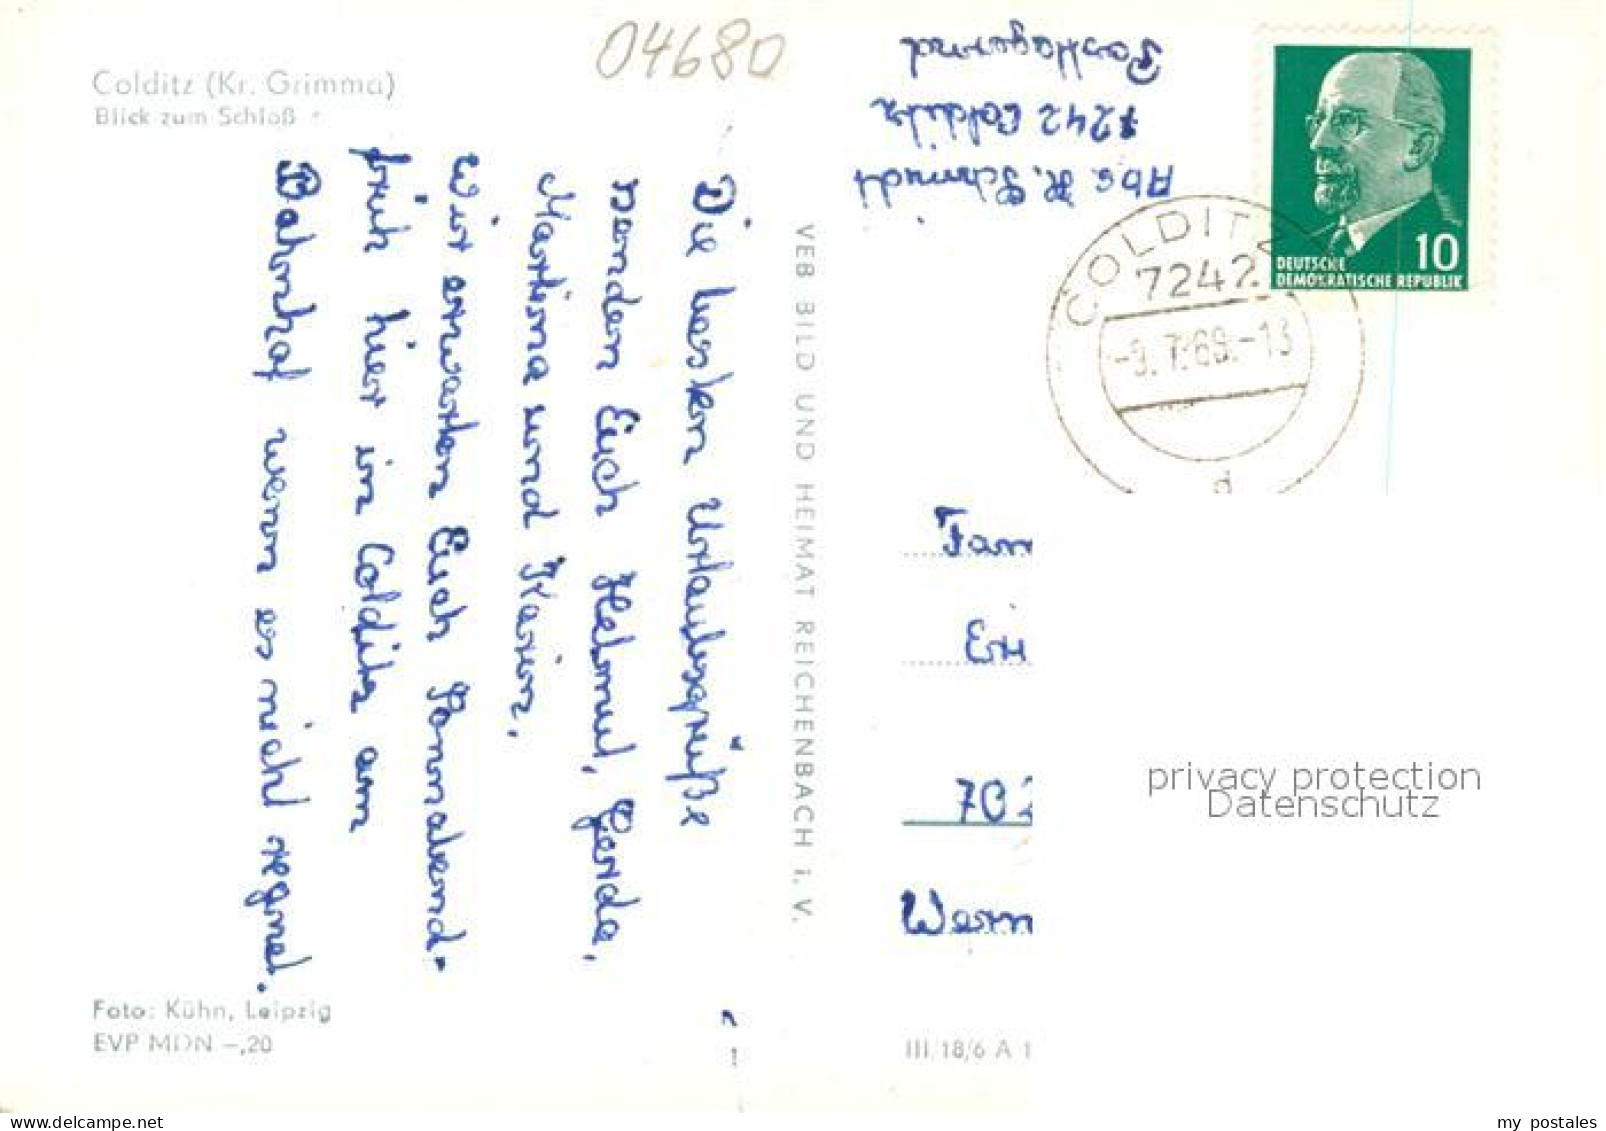 04680
Colditz (Kr. Grimma)
Blick zum Schloß
Die besten Urlaubsgrüße
senden Euch Helmut, Gerda,
Martina und Karin.
Wir erwarten Euch Sonnabend-
früh hier in Colditz am
Bahnhof wenn es nicht regnet.
Foto: Kühn, Leipzig
EVP MDN -,20
VEB BILD UND HEIMAT REICHENBACH i. V.
Abs. H. Schmidt
7242 Colditz
Postlagernd
10
DEUTSCHE
DEMOKRATISCHE REPUBLIK
COLDITZ
7242
-9.7.69.-13
d
Fam
Eri
702
Wern
III/18/6 A 1
privacy protection
Datenschutz
my postales